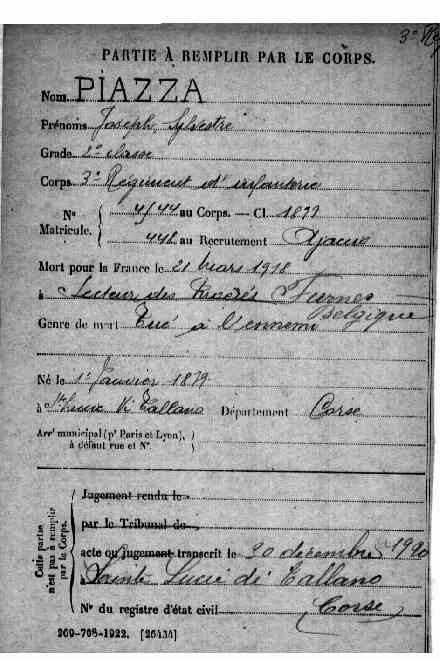 3e
PARTIE À REMPLIR PAR LE CORPS.
Nom PIAZZA
Prénoms Joseph, Sylvestre
Grade 2e classe
Corps 3e Régiment d'infanterie
N° Matricule. { 4144 au Corps. — Cl. 1899
448 au Recrutement Ajaccio
Mort pour la France le 21 Mars 1918
à Secteur des Furnes
Belgique
Genre de mort Tué à l'ennemi
Né le 1er Janvier 1879
à Ste Lucie di Tallano Département Corse
Arrt municipal (pr Paris et Lyon),
à défaut rue et N°.
Cette partie n'est pas à remplir par le Corps.
Jugement rendu le
par le Tribunal de
acte ou jugement transcrit le 30 décembre 1920
Sainte Lucie di Tallano
N° du registre d'état civil (Corse)
269-708-1922. [26434]